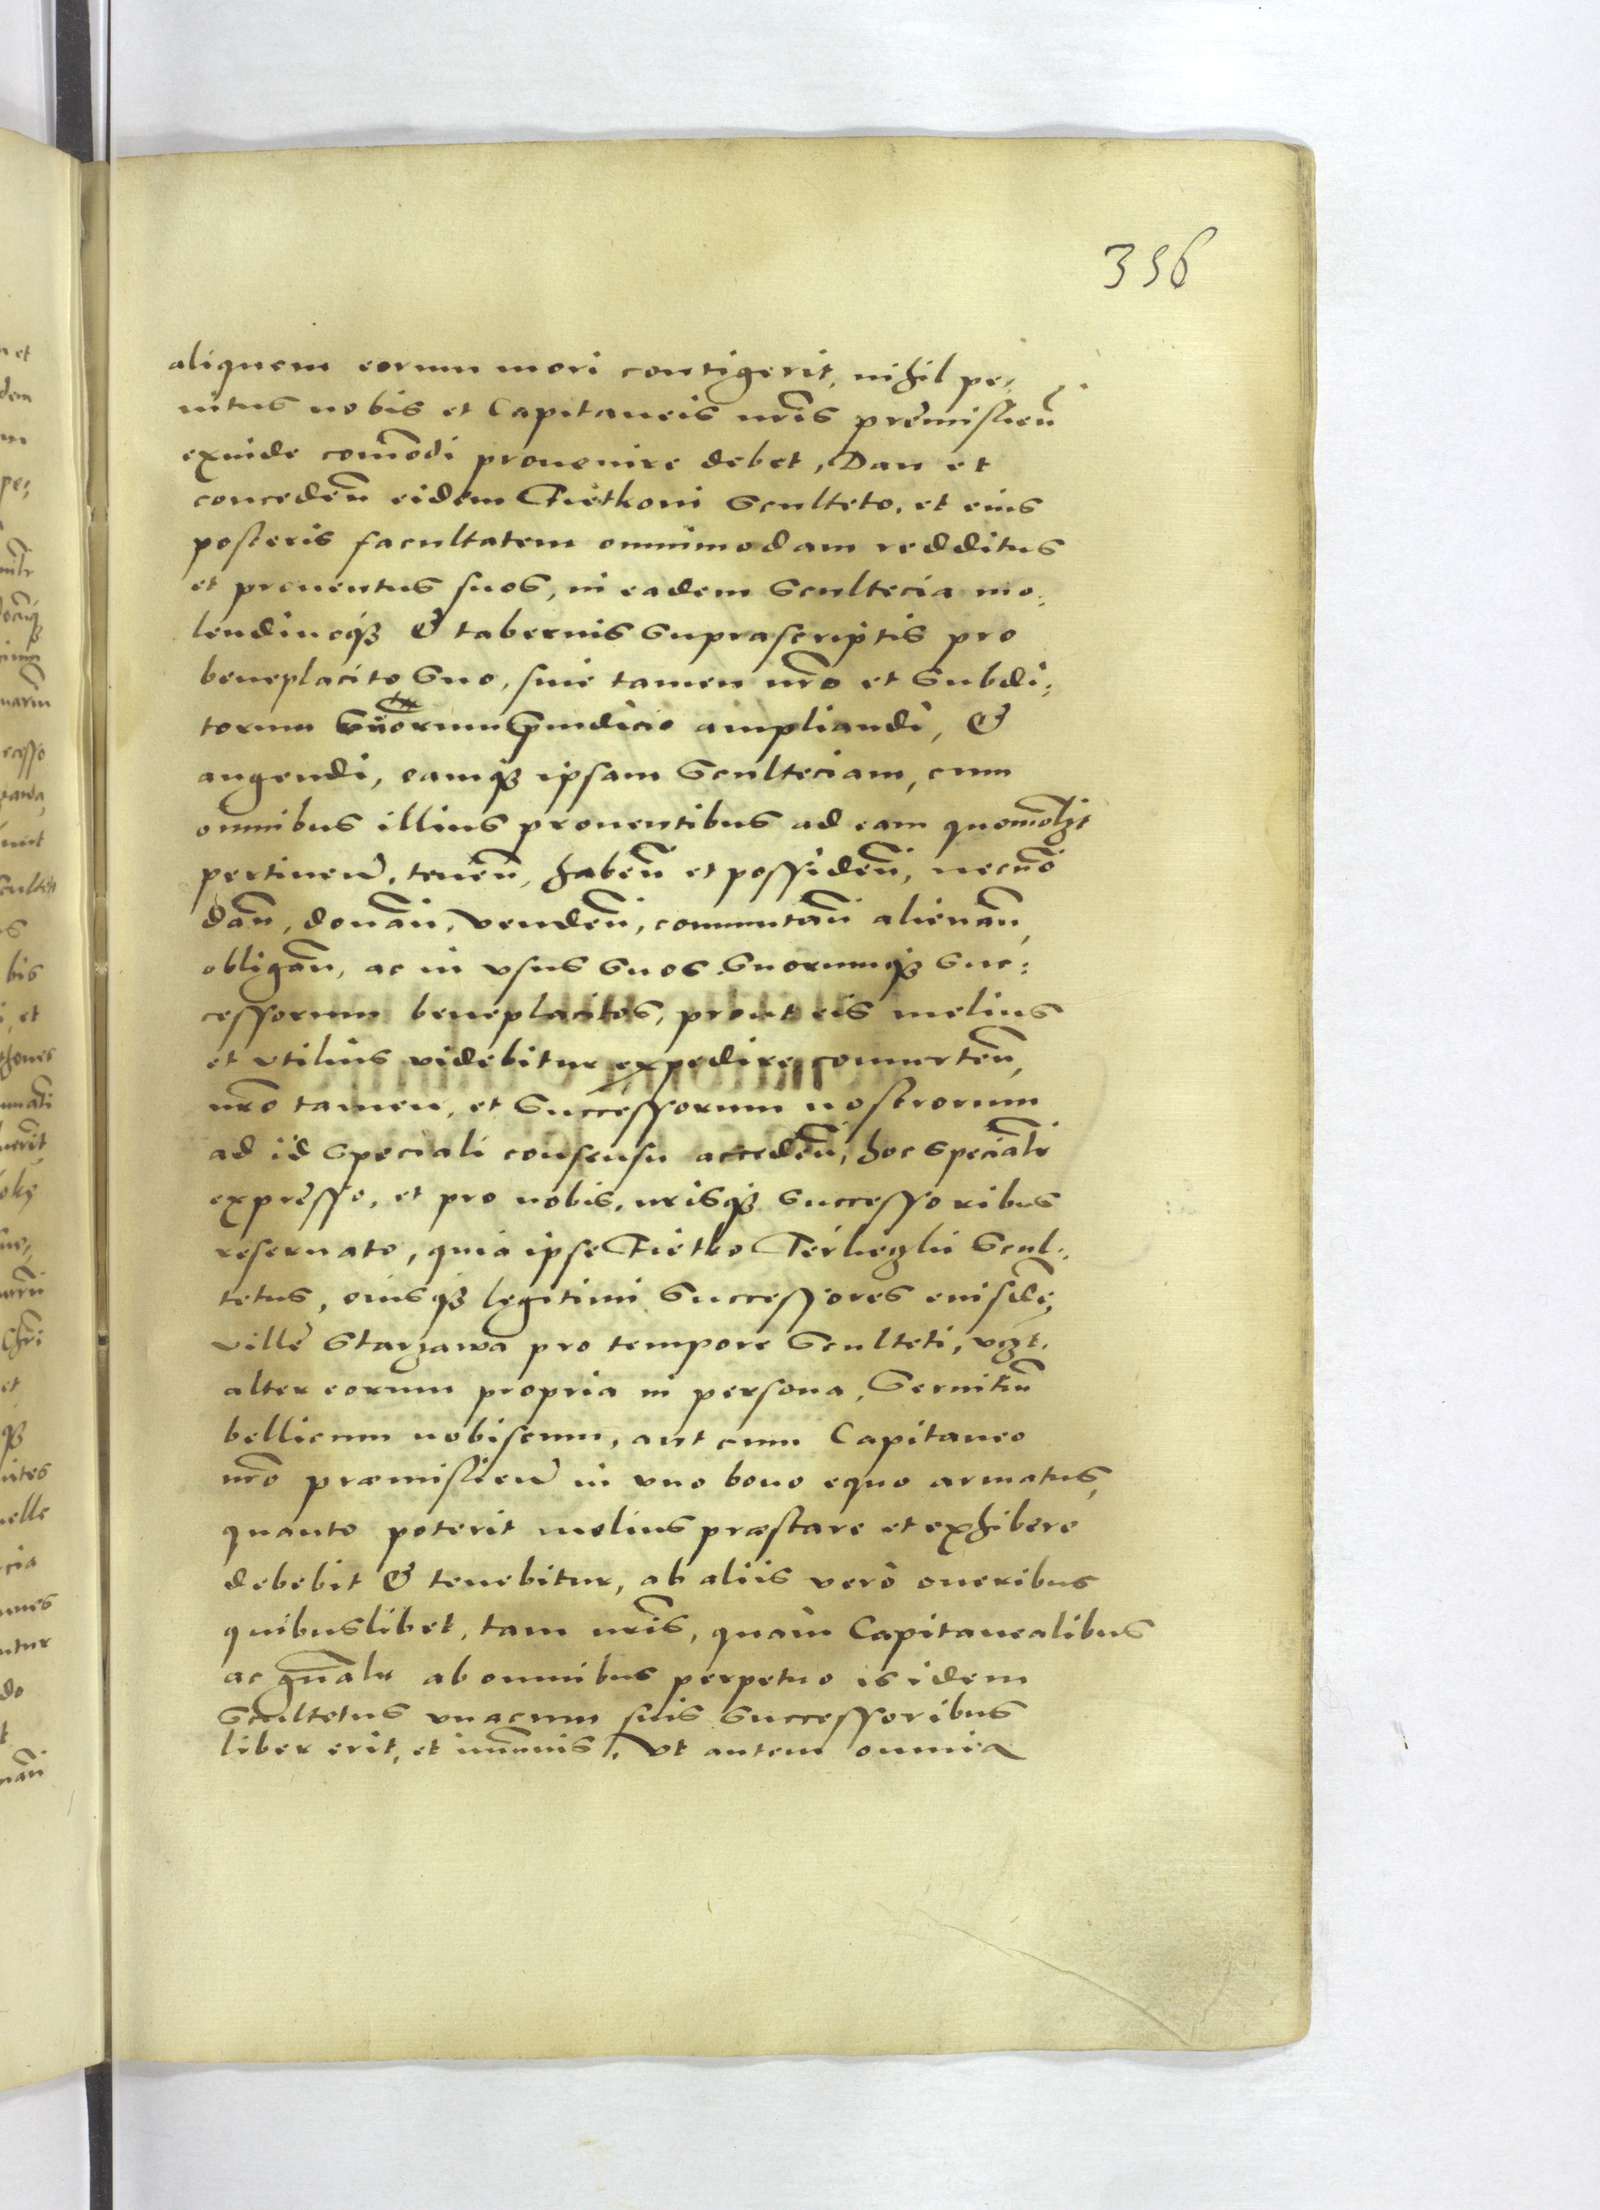 356
aliquem eorum mori contigerit, nihil pe,
nitus nobis et Capitaneis nr̃is premislieñ
exinde com̃odi prouenire debet, Dan et
concedeñ eidem Fietkoni Sculteto, et eius
posteris facultatem omnimodam redditus
et prouentus suos, in eadem Scultecia mo,
lendinoq3 & tabernis suprascriptis pro
beneplacito suo, sine tamen nr̃o et Subdi,
torum nr̃orum p̃iudicio ampliandi, &
augendi, eamq3 ipsam Sculteciam, cum
omnibus illius prouentibus ad eam quomõlzt
pertineñ, teneñ, habeñ et possideñ, necnõ
dañ, donañ, vendeñ, commutañ alienañ,
obligañ, ac in vsus suos suorumq3 suc,
cessorum beneplacitos, prout eis melius
et vtilius videbitur expedire conuerteñ,
nr̃o tamen, et Successorum nostrorum
ad id speciali consensu accedeñ, hoc specialr̃
expresso, et pro nobis, nrisq3 successoribus
reseruato, quia ipse Fietko Terlieczkii Scul,
tetus, eiusq3 legitimi Successores euisdẽ,
ville Starzawa pro tempore Sculteti, vzt.
alter eorum propria in persona, Seruitiũ
bellicum nobiscum, aut cum Capitaneo
nr̃o præmislieñ in vno bono equo armatus,
quanto poterit melius præstare et exhibere
debebit & tenebitur, ab aliis verò oneribus
quibuslibet, tam nr̃is, quàm Capitanealibus
ac gñalr̃ ab omnibus perpetuo is idem
Scultetus vnacum suis Successoribus
liber erit, et im̃unis, Vt autem omnia